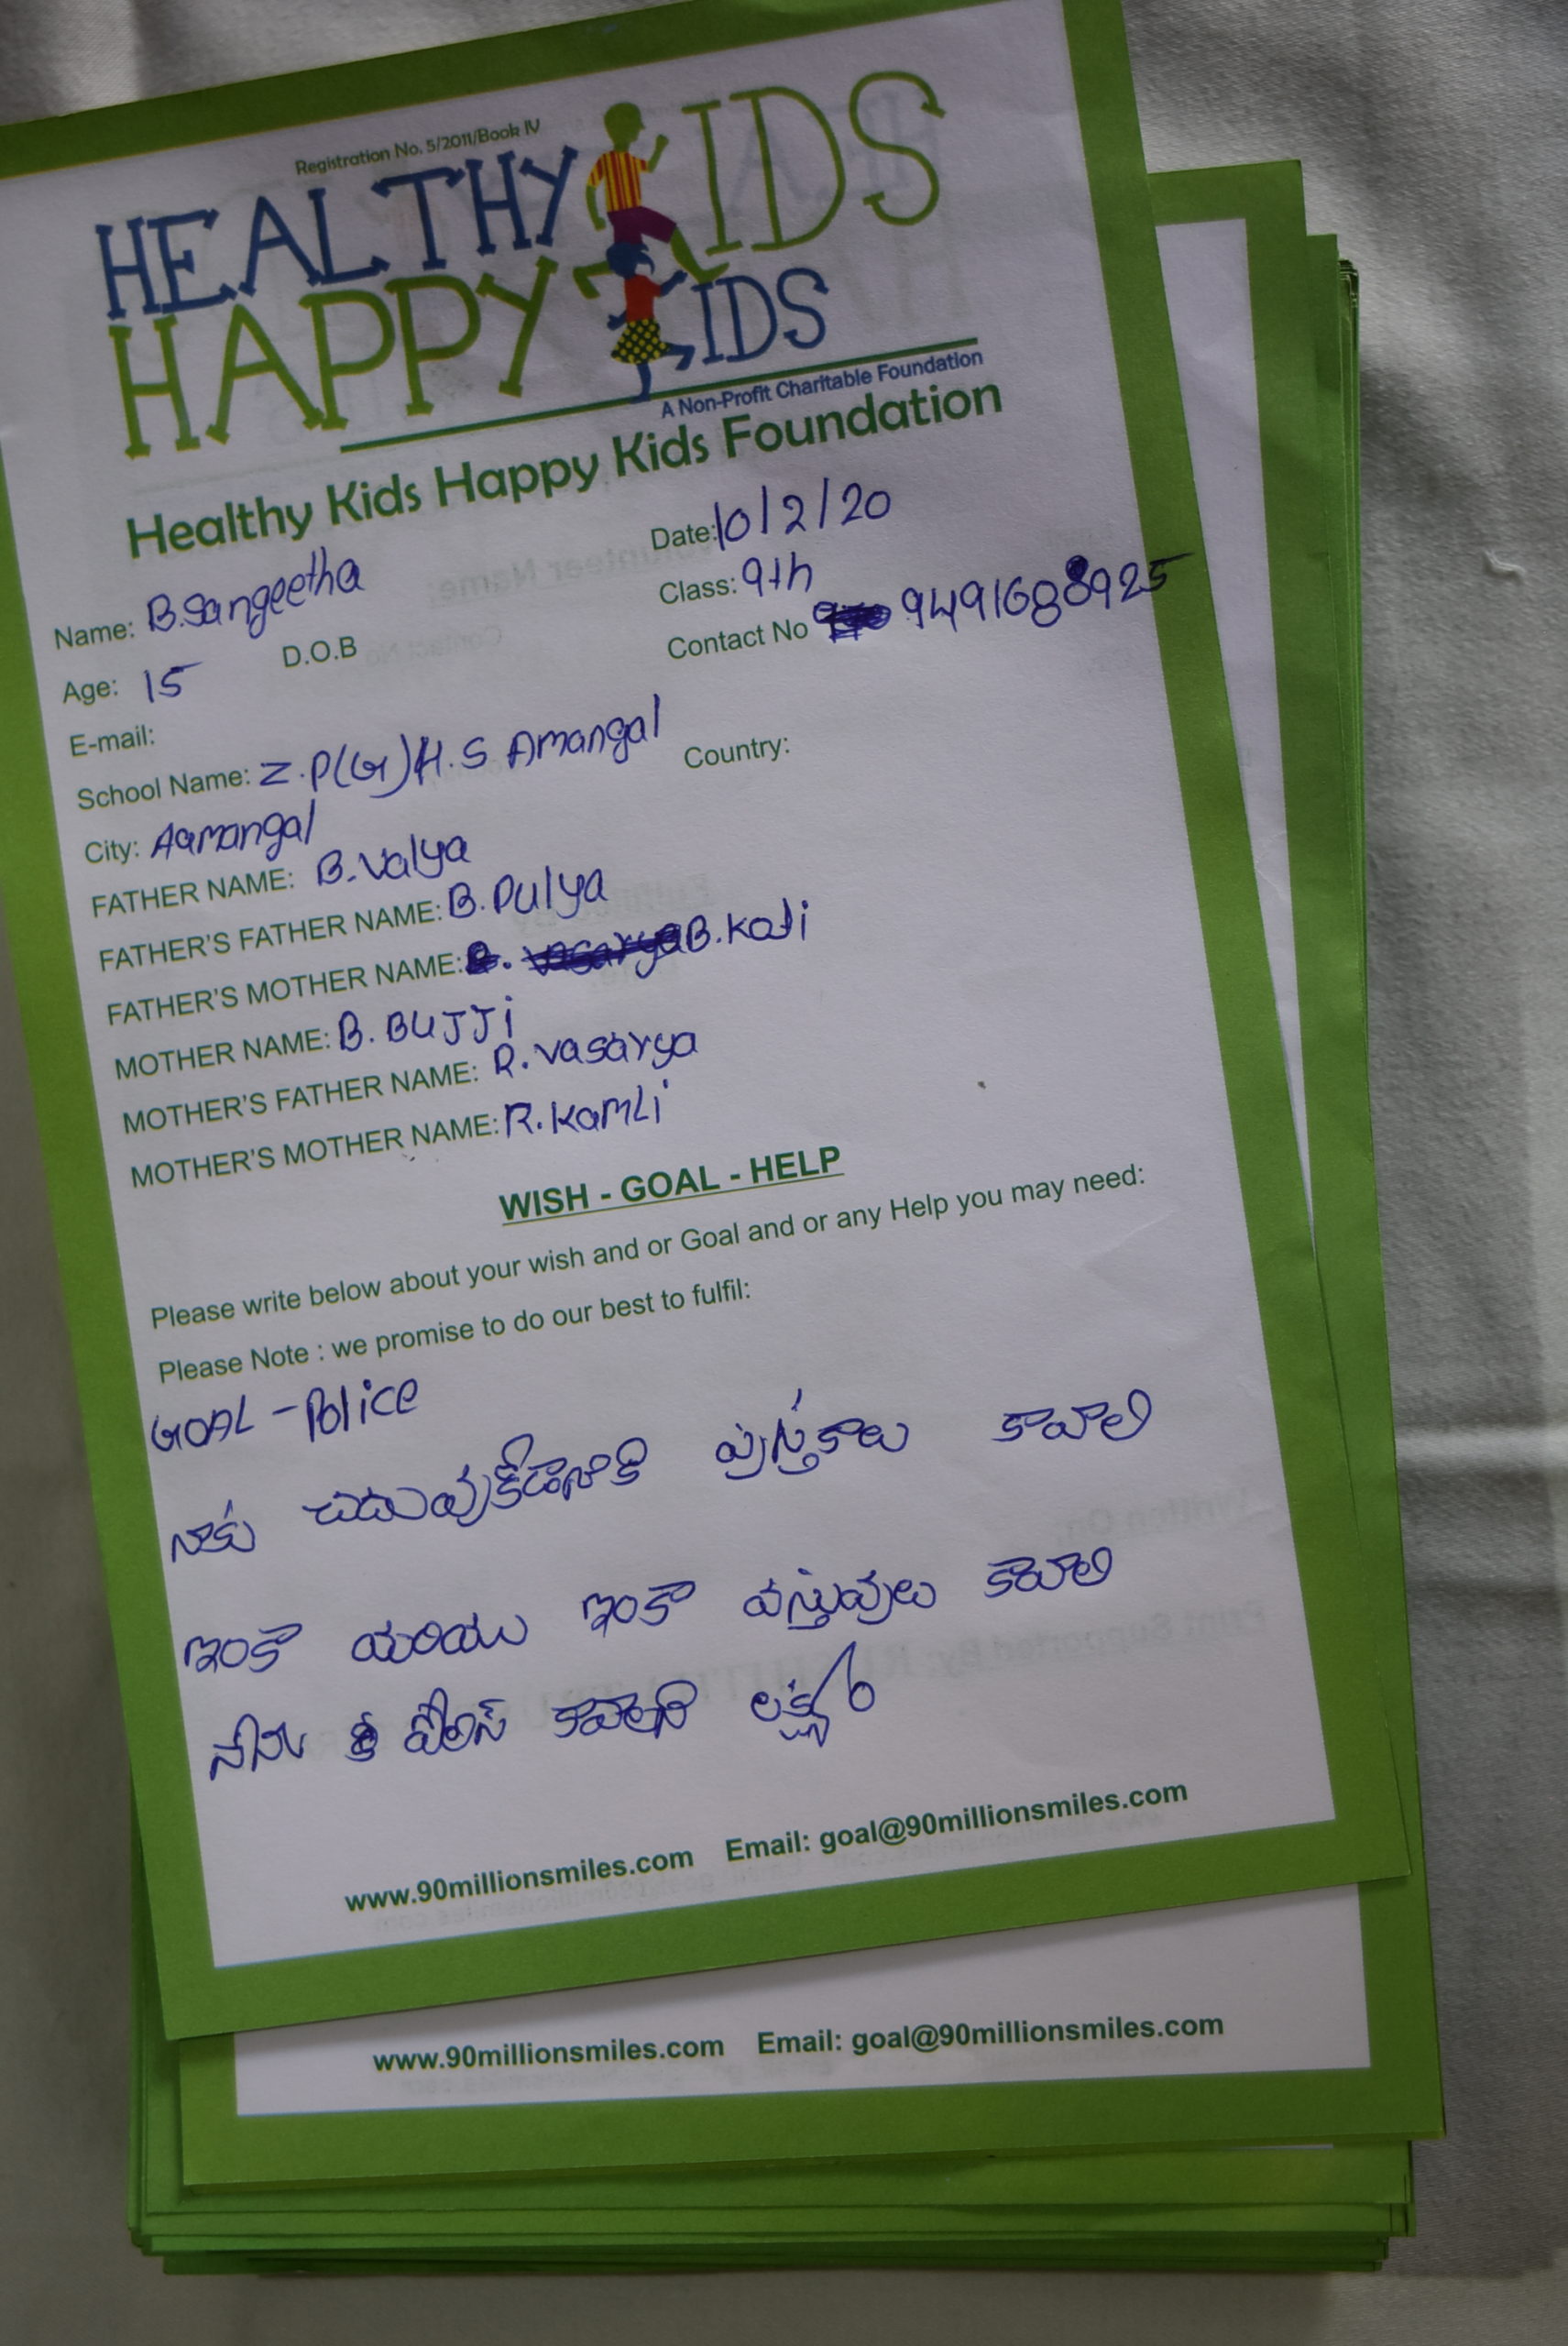 Registration No. 5/2011/Book IV
HEALTHY KIDS
HAPPY KIDS
A Non-Profit Charitable Foundation
Healthy Kids Happy Kids Foundation
Date: 10/2/20
Name: B.Sangeetha
Class: 9th
Age: 15 D.O.B
Contact No 9491688925
E-mail:
School Name: Z.P(G)H.S Amangal
Country:
City: Aamangal
FATHER NAME: B.Valya
FATHER'S FATHER NAME: B.Pulya
FATHER'S MOTHER NAME: B.Kali
MOTHER NAME: B.BUJJi
MOTHER'S FATHER NAME: R.vasarya
MOTHER'S MOTHER NAME: R.KamLi
WISH - GOAL - HELP
Please write below about your wish and or Goal and or any Help you may need:
Please Note : we promise to do our best to fulfil:
GOAL - Police
నాకు చదువుకోడానికి పుస్తకాలు కావాలి
ఇంకా మరియు ఇంకా వస్తువులు కావాలి
నేను పోలిస్ కావాలని లక్ష్యం
www.90millionsmiles.com Email: goal@90millionsmiles.com
www.90millionsmiles.com Email: goal@90millionsmiles.com